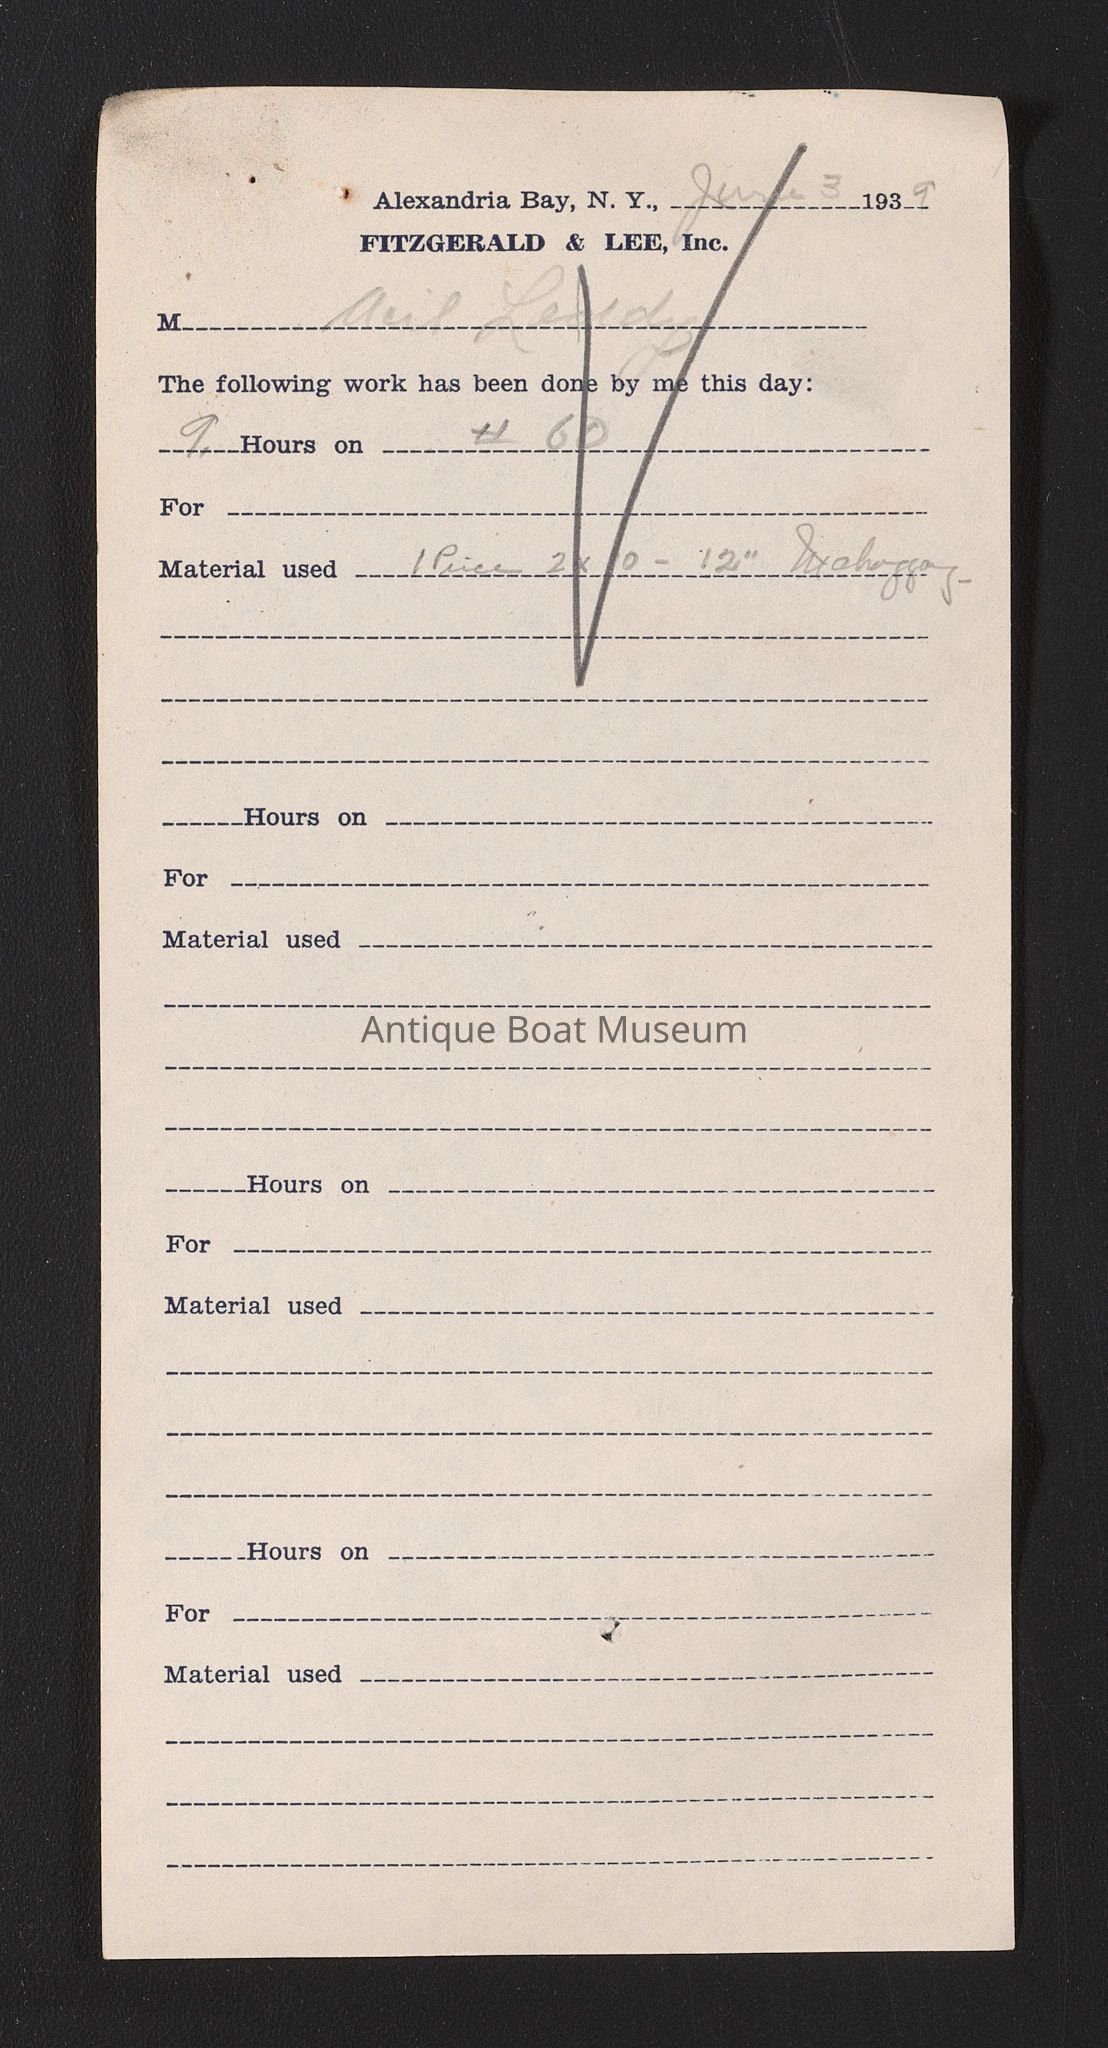 Alexandria Bay, N. Y., June 3 1939
FITZGERALD & LEE, Inc.
M Neil Leddy
The following work has been done by me this day:
9 Hours on # 60
For
Material used 1 Piece 2 x 10 - 12" Mahoggany
Hours on
For
Material used
Antique Boat Museum
Hours on
For
Material used
Hours on
For
Material used